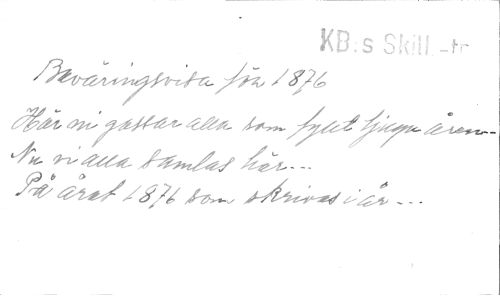 KB:s Skill.-tr
Beväringsvisa för 1876
Hör ni gossar alla som fyllt tjugu åren --
Nu vi alla samlas här ---
På året 1876 som skrives i år ---